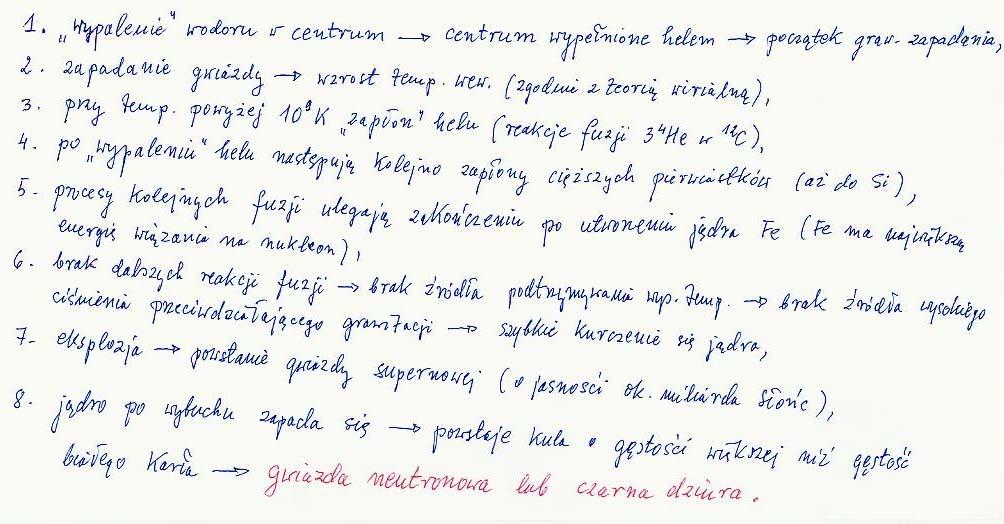 1. „wypalenie" wodoru w centrum → centrum wypełnione helem → początek graw. zapadania,
2. zapadanie gwiazdy → wzrost temp. wew. (zgodnie z teorią wirialną),
3. przy temp. powyżej 10⁸K „zapłon" helu (reakcje fuzji 3⁴He w ¹²C),
4. po „wypaleniu" helu następują kolejno zapłony cięższych pierwiastków (aż do Si),
5. procesy kolejnych fuzji ulegają zakończeniu po utworzeniu jądra Fe (Fe ma największą
energię wiązania na nukleon),
6. brak dalszych reakcji fuzji → brak źródła podtrzymywania wys. temp. → brak źródła wysokiego
ciśnienia przeciwdziałającego grawitacji → szybkie kurczenie się jądra,
7. eksplozja → powstanie gwiazdy supernowej (o jasności ok. miliarda słońc),
8. jądro po wybuchu zapada się → powstaje kula o gęstości większej niż gęstość
białego karła → gwiazda neutronowa lub czarna dziura.